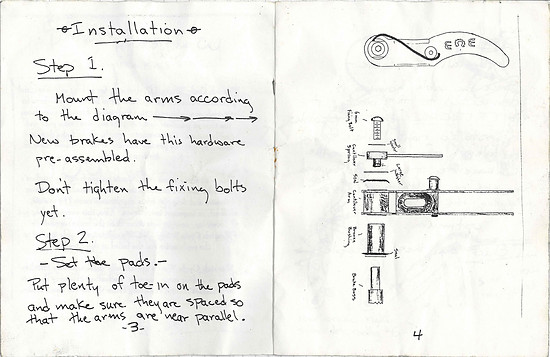 Installation
Step 1.
Mount the arms according
to the diagram
New brakes have this hardware
pre-assembled.
Don't tighten the fixing bolts
yet.
Step 2.
- Set the pads. -
Put plenty of toe-in on the pads
and make sure they are spaced so
that the arms are near parallel.
-3-
ECE
Fixing Bolt
Cantilever
Spring
Seal
Cantilever
Arm
Bronze
Bushing
Seal
Brake Boss
4